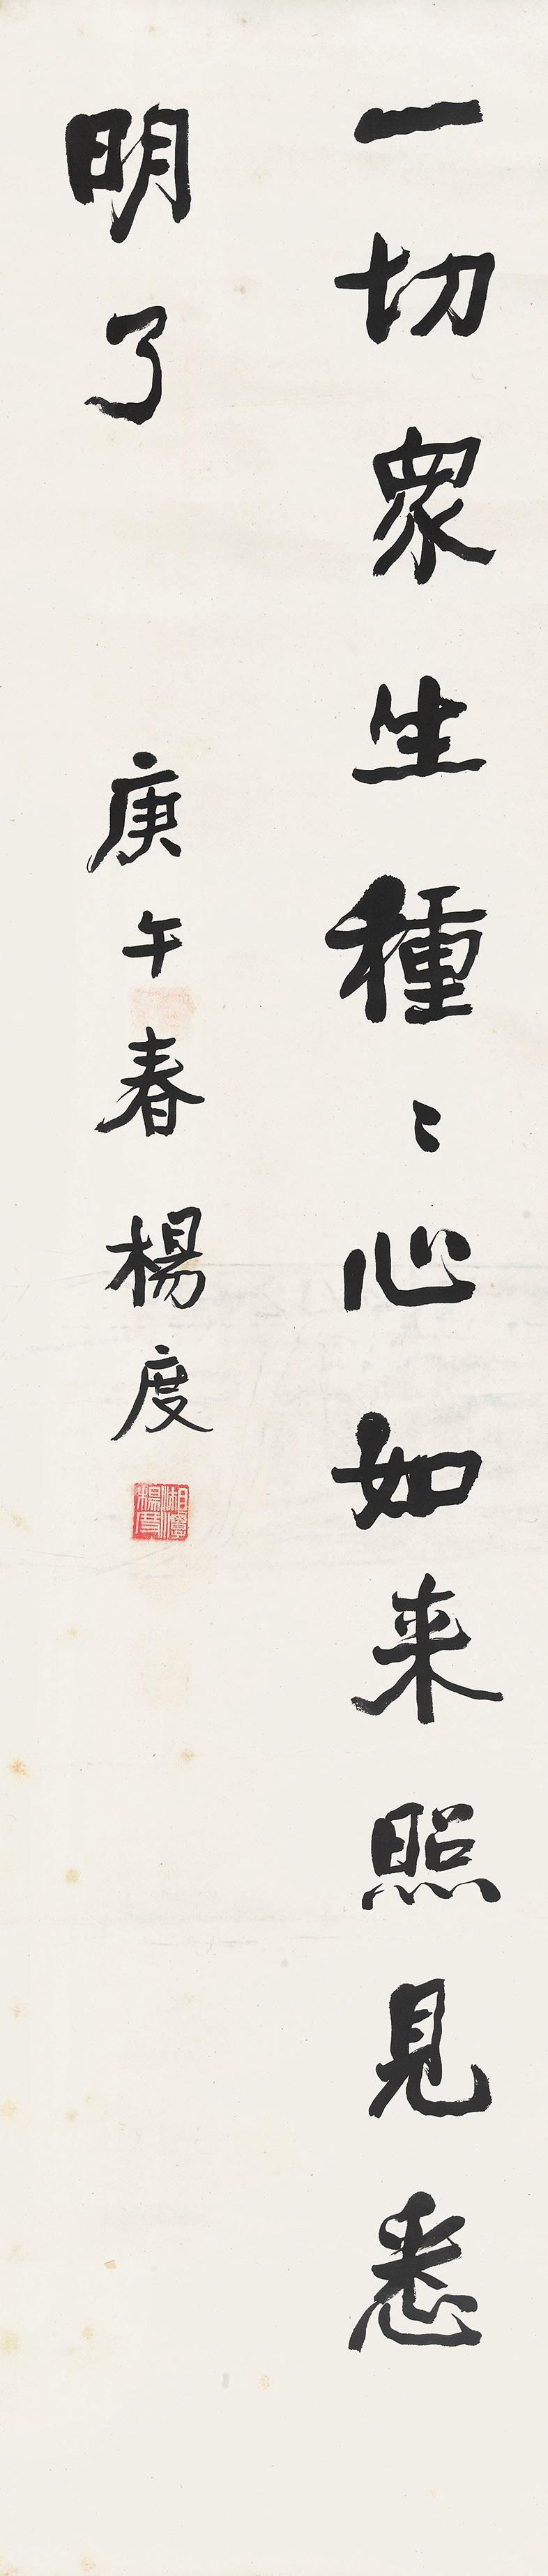 一切衆生種〻心如来照見悉
明了
庚午春 楊度
湘潭楊度